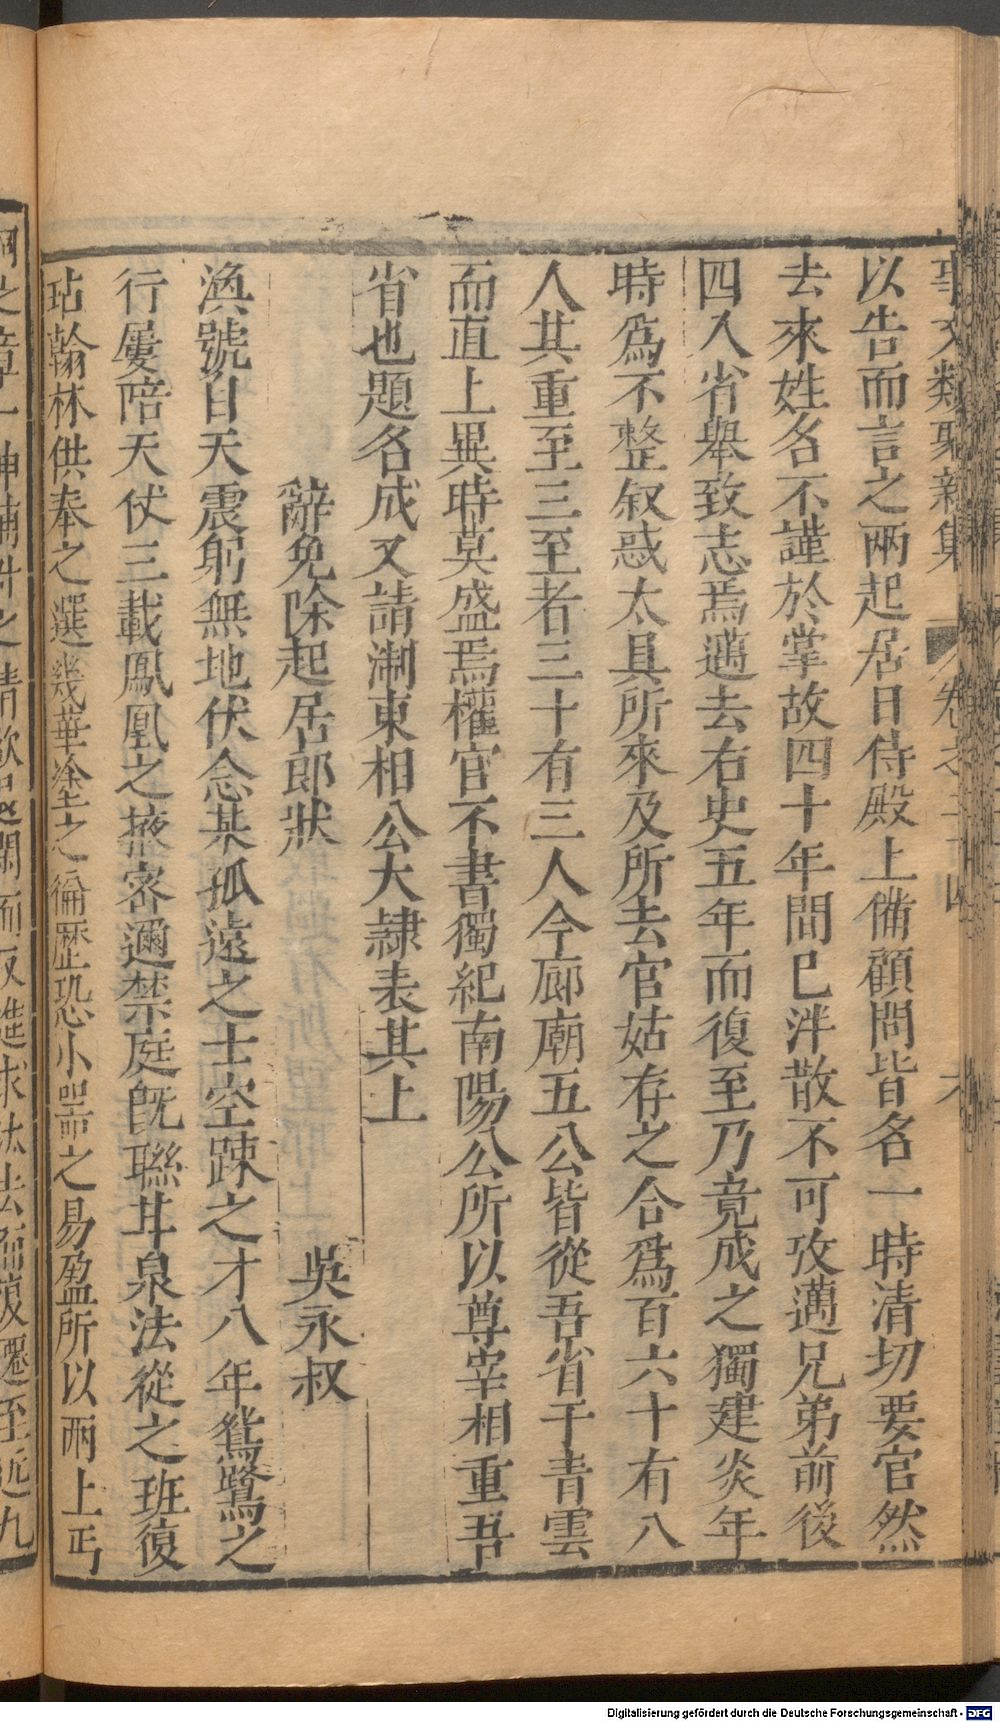 事文類聚新集 卷之二十四 六
以告而言之兩起居日侍殿上備顧問皆名一時清切要官然
去來姓名不謹於掌故四十年間已泮散不可攷邁兄弟前後
四入省舉致志焉邁去右史五年而復至乃竟成之獨建炎年
時爲不整叙惑太具所來及所去官姑存之合爲百六十有八
人其重至三至者三十有三人今廊廟五公皆從吾省于青雲
而直上異時莫盛焉權官不書獨紀南陽公所以尊宰相重吾
省也題名成又請淛東相公大隷表其上
辭免除起居郎狀 吳永叔
渙號自天震躬無地伏念某孤遠之士空踈之才八年鴛鷺之
行屢陪天仗三載鳳凰之掖密邇禁庭旣聯甘泉法從之班復
玷翰林供奉之選幾華塗之徧歷恐小器之易盈所以兩上丐
Digitalisierung gefördert durch die Deutsche Forschungsgemeinschaft - DFG